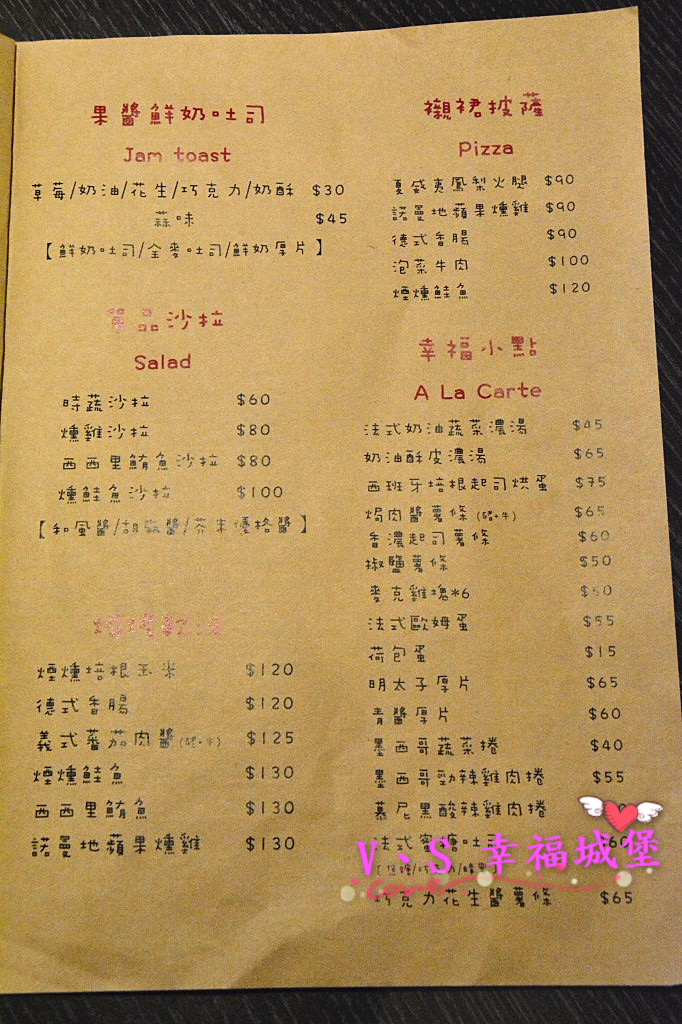 果醬鮮奶吐司
Jam toast
草莓/奶油/花生/巧克力/奶酥 $30
蒜味 $45
【鮮奶吐司/全麥吐司/鮮奶厚片】
單品沙拉
Salad
時蔬沙拉 $60
燻雞沙拉 $80
西西里鮪魚沙拉 $80
燻鮭魚沙拉 $100
【和風醬/胡麻醬/芥末優格醬】
煙燻培根玉米 $120
德式香腸 $120
義式蕃茄肉醬(豬+牛) $125
煙燻鮭魚 $130
西西里鮪魚 $130
諾曼地蘋果燻雞 $130
襯裙披薩
Pizza
夏威夷鳳梨火腿 $90
諾曼地蘋果燻雞 $90
德式香腸 $90
泡菜牛肉 $100
煙燻鮭魚 $120
幸福小點
A La Carte
法式奶油蔬菜濃湯 $45
奶油酥皮濃湯 $65
西班牙培根起司烘蛋 $75
焗肉醬薯條(豬+牛) $65
香濃起司薯條 $60
椒鹽薯條 $50
麥克雞塊*6 $50
法式歐姆蛋 $55
荷包蛋 $15
明太子厚片 $65
青醬厚片 $60
墨西哥蔬菜捲 $40
墨西哥勁辣雞肉捲 $55
慕尼黑酸辣雞肉捲
法式蜜糖吐司 $60
巧克力花生醬薯條 $65
V、S 幸福城堡